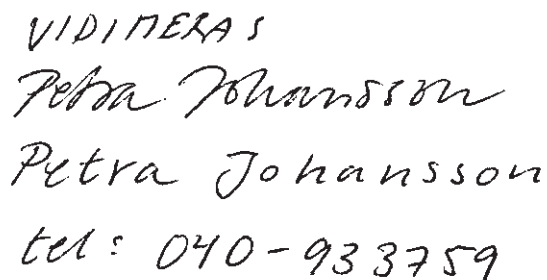 VIDIMERAS
Petra Johansson
Petra Johansson
tel: 040-933759